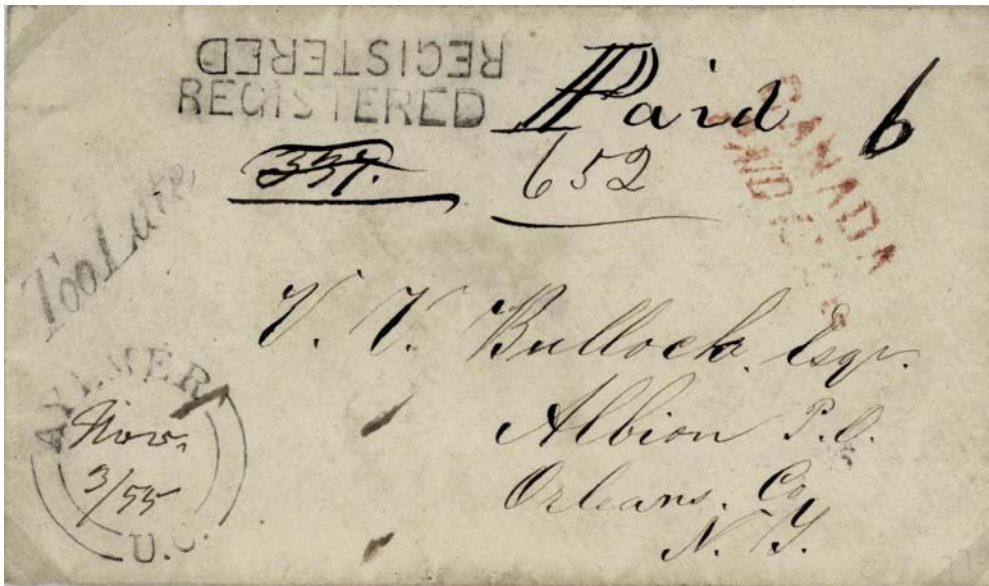 REGISTERED
REGISTERED
Paid 6
652
Too Late
CANADA
V. V. Bullock Esqr.
Albion P.O.
Orleans. Co
N. Y.
AYLMER
Nov.
3/55
U.C.